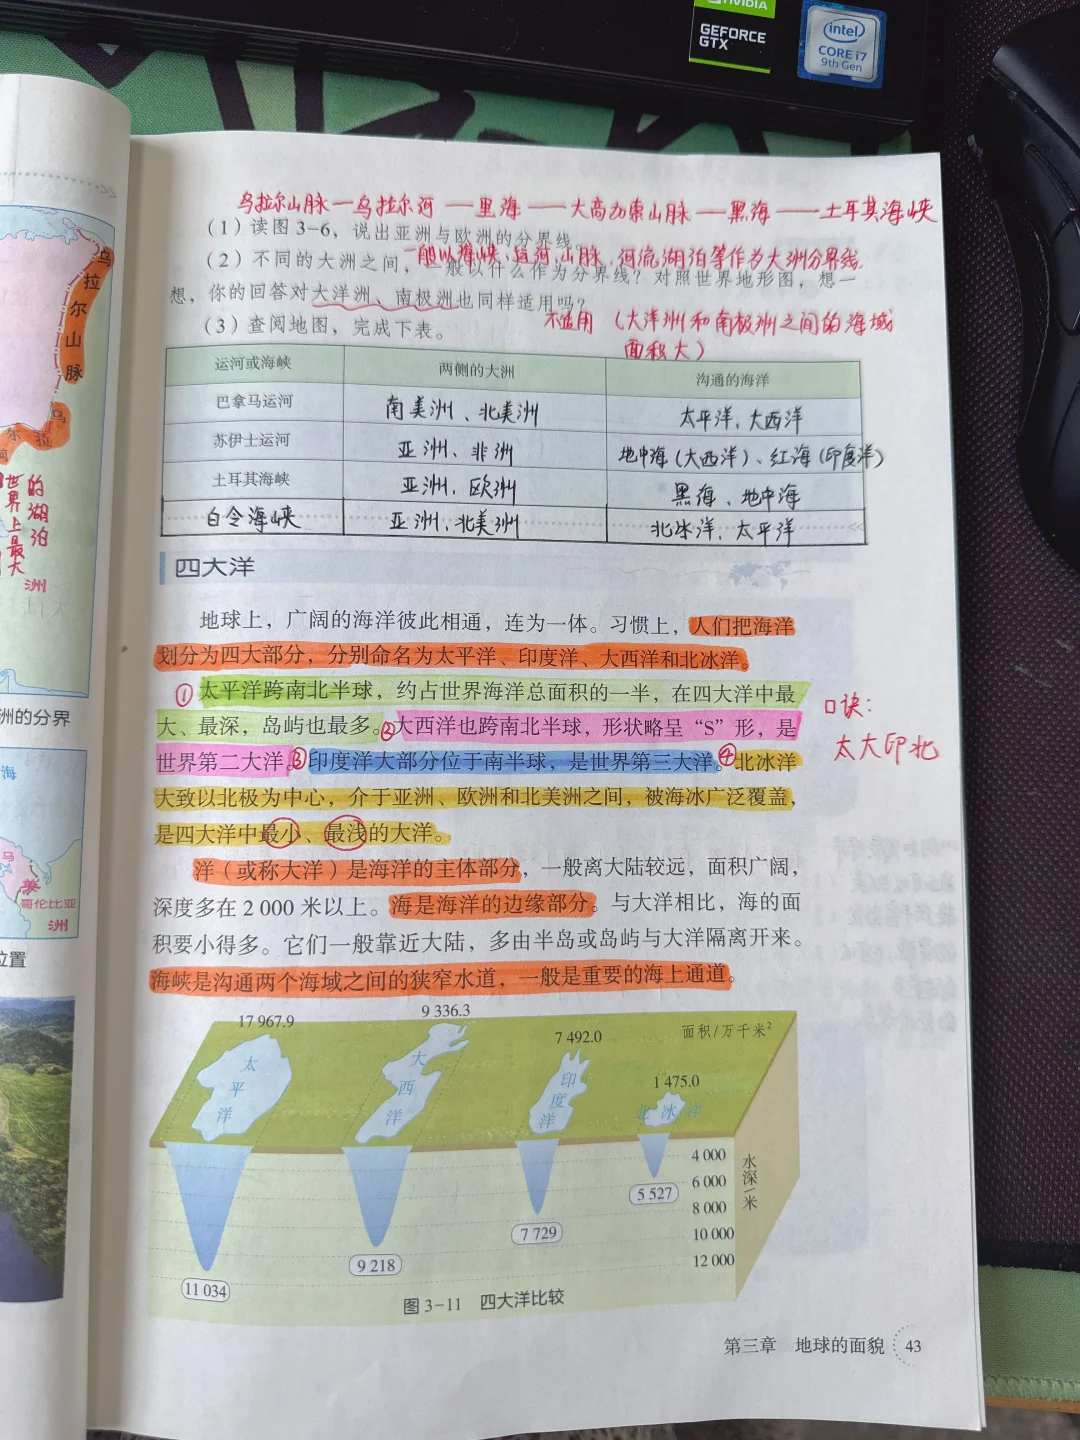 NVIDIA
GEFORCE
GTX
intel
CORE i7
9th Gen
乌拉尔山脉—乌拉尔河—里海——大高加索山脉—黑海——土耳其海峡
(1)读图3-6，说出亚洲与欧洲的分界线。
一般以海峡、运河、山脉、河流湖泊等作为大洲分界线.
(2)不同的大洲之间，一般以什么作为分界线？对照世界地形图，想一
想，你的回答对大洋洲、南极洲也同样适用吗？
不适用（大洋洲和南极洲之间的海域
面积大）
(3)查阅地图，完成下表。
运河或海峡 两侧的大洲 沟通的海洋
巴拿马运河 南美洲、北美洲 太平洋、大西洋
苏伊士运河 亚洲、非洲 地中海(大西洋)、红海(印度洋)
土耳其海峡 亚洲、欧洲 黑海、地中海
白令海峡 亚洲、北美洲 北冰洋、太平洋
四大洋
地球上，广阔的海洋彼此相通，连为一体。习惯上，人们把海洋
划分为四大部分，分别命名为太平洋、印度洋、大西洋和北冰洋。
①太平洋跨南北半球，约占世界海洋总面积的一半，在四大洋中最
大、最深，岛屿也最多。②大西洋也跨南北半球，形状略呈“S”形，是
世界第二大洋。③印度洋大部分位于南半球，是世界第三大洋。④北冰洋
大致以北极为中心，介于亚洲、欧洲和北美洲之间，被海冰广泛覆盖，
是四大洋中最小、最浅的大洋。
口诀：
太大印北
洋（或称大洋）是海洋的主体部分，一般离大陆较远，面积广阔，
深度多在2 000米以上。海是海洋的边缘部分。与大洋相比，海的面
积要小得多。它们一般靠近大陆，多由半岛或岛屿与大洋隔离开来。
海峡是沟通两个海域之间的狭窄水道，一般是重要的海上通道。
17 967.9
9 336.3
7 492.0
1 475.0
面积/万千米²
太平洋
大西洋
印度洋
北冰洋
4 000
6 000
8 000
10 000
12 000
水深/米
11 034
9 218
7 729
5 527
图 3-11 四大洋比较
第三章 地球的面貌 43
乌拉尔山脉
乌
拉
尔
河
的湖泊
世界上最大
洲
洲的分界
海
马
美
哥伦比亚
洲
位置